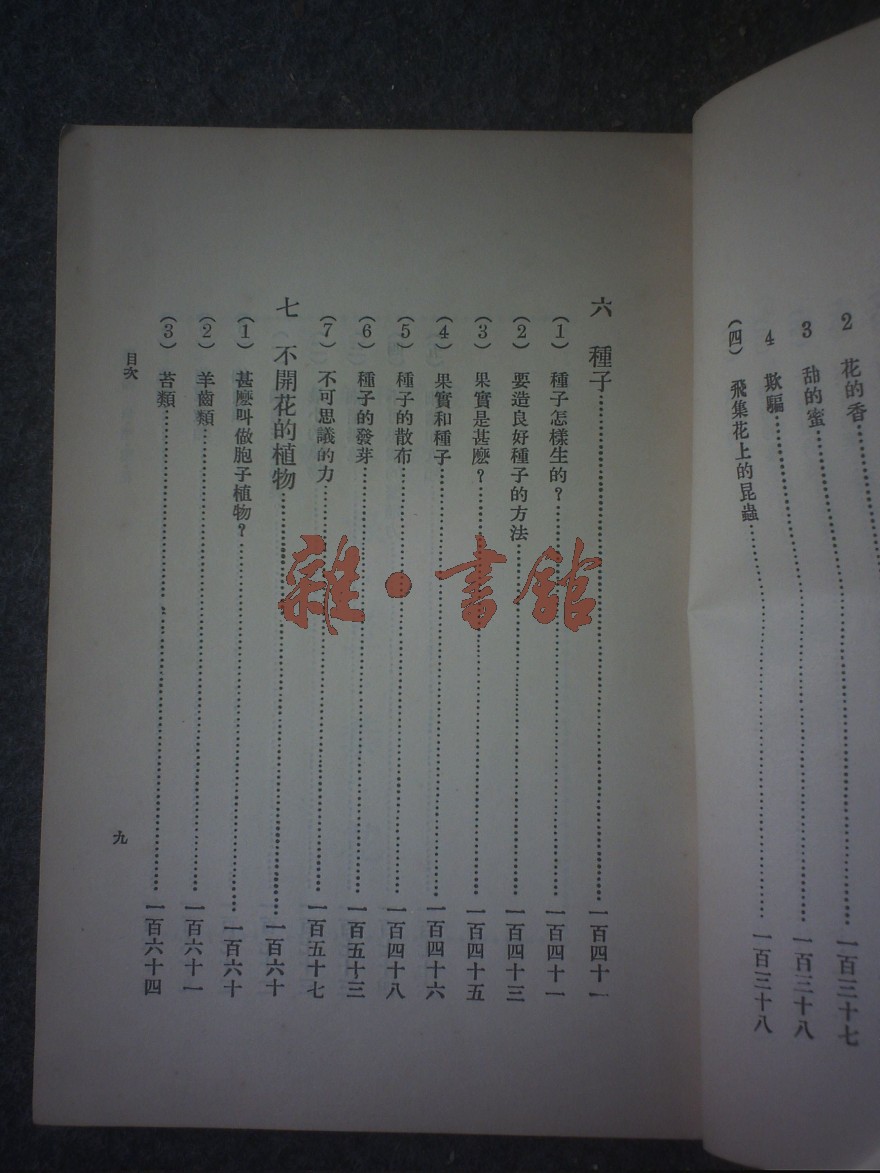 2 花的香……一百三十七
3 甜的蜜……一百三十八
4 欺騙……一百三十八
(四) 飛集花上的昆蟲……
六 種子……一百四十一
(1) 種子怎樣生的?……一百四十一
(2) 要造良好種子的方法……一百四十三
(3) 果實是甚麽?……一百四十五
(4) 果實和種子……一百四十六
(5) 種子的散布……一百四十八
(6) 種子的發芽……一百五十三
(7) 不可思議的力……一百五十七
七 不開花的植物……一百六十
(1) 甚麽叫做胞子植物?……一百六十
(2) 羊齒類……一百六十一
(3) 苔類……一百六十四
目次
九
雜·書館